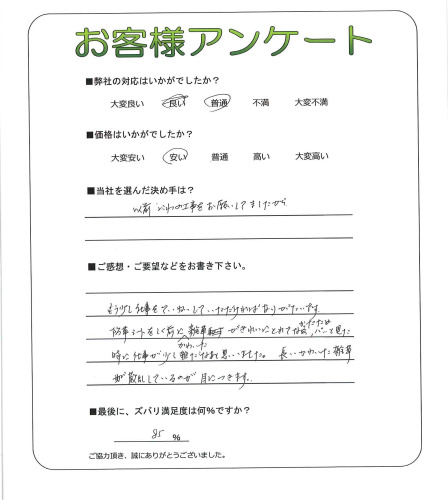 お客様アンケート
■弊社の対応はいかがでしたか？
大変良い 良い 普通 不満 大変不満
■価格はいかがでしたか？
大変安い 安い 普通 高い 大変高い
■当社を選んだ決め手は？
以前 の工事をお願いしてましたから
■ご感想・ご要望などをお書き下さい。
もう少し仕事をていねいしていただければありがたいです。
防草シートをしく前に雑草 がきれいにとれてな
かったため
パッと見た
かわいた
時に仕事が少し雑だなあと思いました。 長いかわいた雑草
が散乱しているのが目につきます。
■最後に、ズバリ満足度は何%ですか？
85 %
ご協力頂き、誠にありがとうございました。